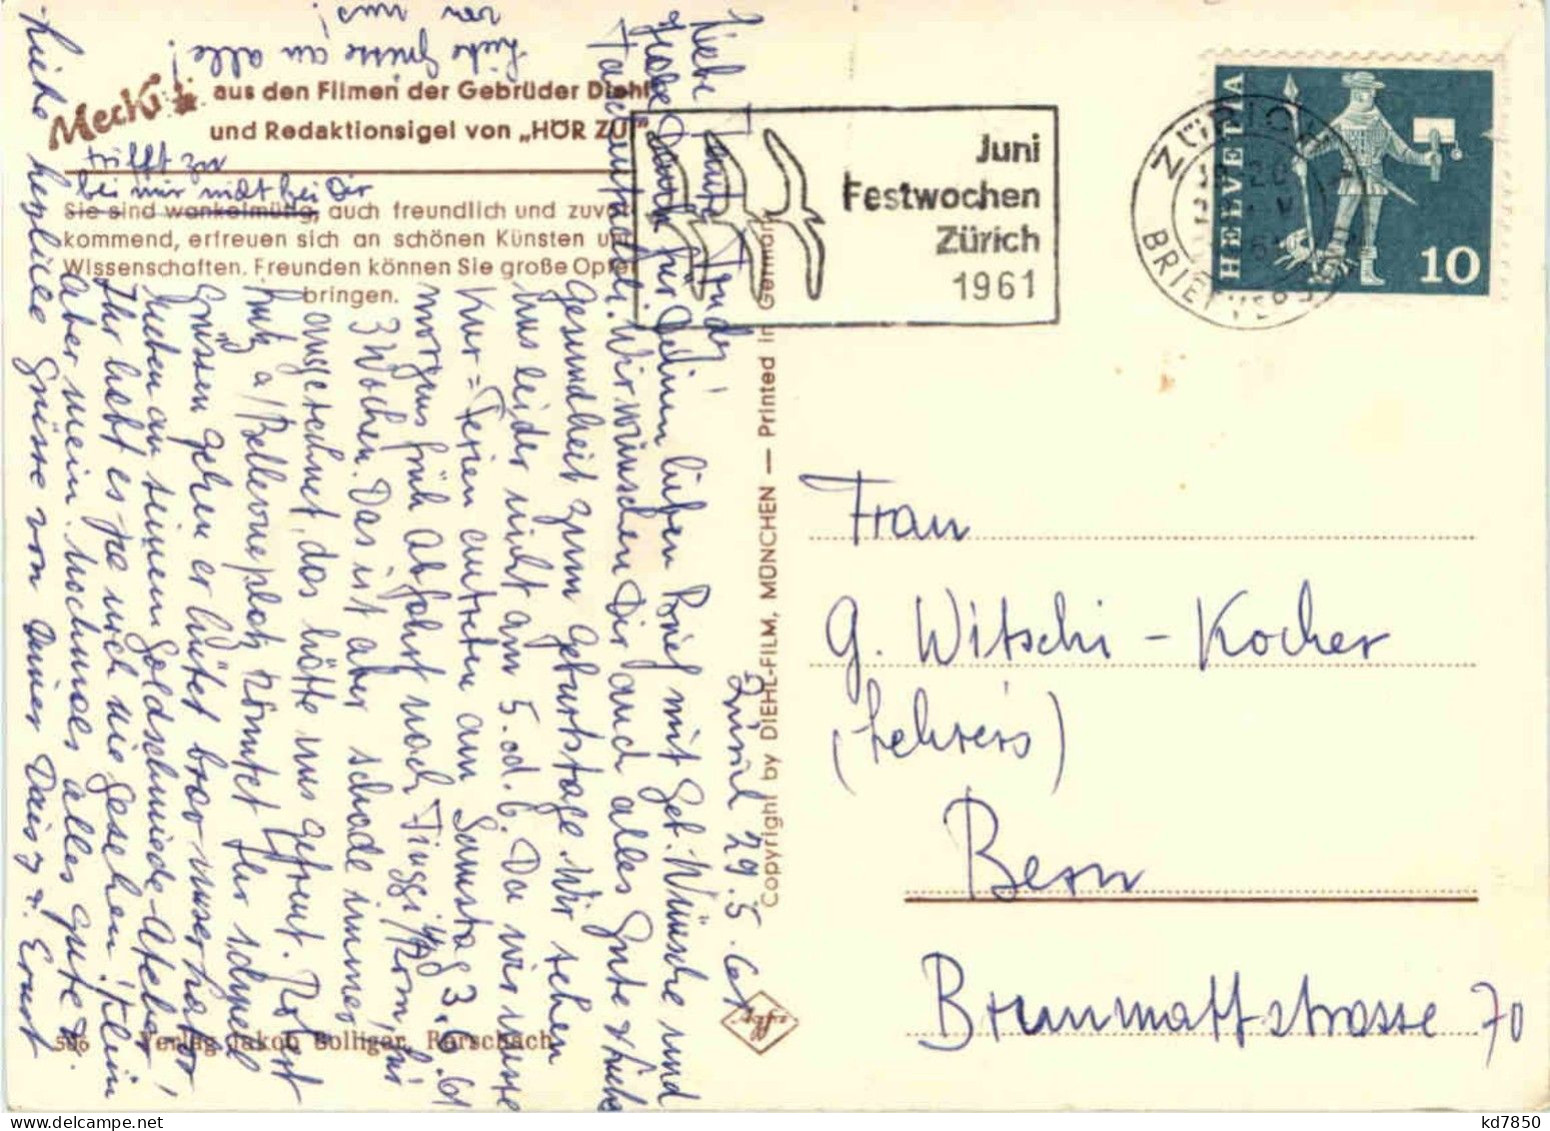 Mecki
aus den Filmen der Gebrüder Diehl
und Redaktionsigel von „HÖR ZU“
trifft zu
bei mir nicht bei Dir
Sie sind wankelmütig, auch freundlich und zuvor
kommend, erfreuen sich an schönen Künsten u
Wissenschaften. Freunden können Sie große Opfer
bringen.
Zürich 29.5.61
Liebe Tante Trudy!
Habe Dank für Deinen lieben Brief mit Geb. Wünsche und
Taschentüchli. Wir wünschen Dir auch alles Gute & liebe
Gesundheit zum Geburtstage. Wir sehen
uns leider nicht am 5. od. 6. Da wir unsere
Kur = Ferien antreten am Samstag 3.6.61
morgens früh Abfahrt nach
3 Wochen. Das ist aber schade immer
ausgerechnet, das hätte uns gefreut. Robert
hat a/Bellevueplatz könntet Ihr schnell
grüssen gehen er hütet brav unser
neben an seinem Goldschmiede-Atelier,
Ihr habt es ja noch nie gesehen. Klein
aber mein. Nochmals alles gute &
liebe herzliche Grüsse von Deiner Daisy & Ernst
Liebe Grüsse an alle!
von uns!
Juni
Festwochen
Zürich
1961
ZÜRICH
BRIEFVERSAND
HELVETIA
10
Copyright by DIEHL-FILM, MÜNCHEN — Printed in Germany
Frau
G. Witschi - Kocher
(Lehrers)
Bern
Brunnmattstrasse 70
506 Verlag Jakob Bolliger, Rorschach
kd7850